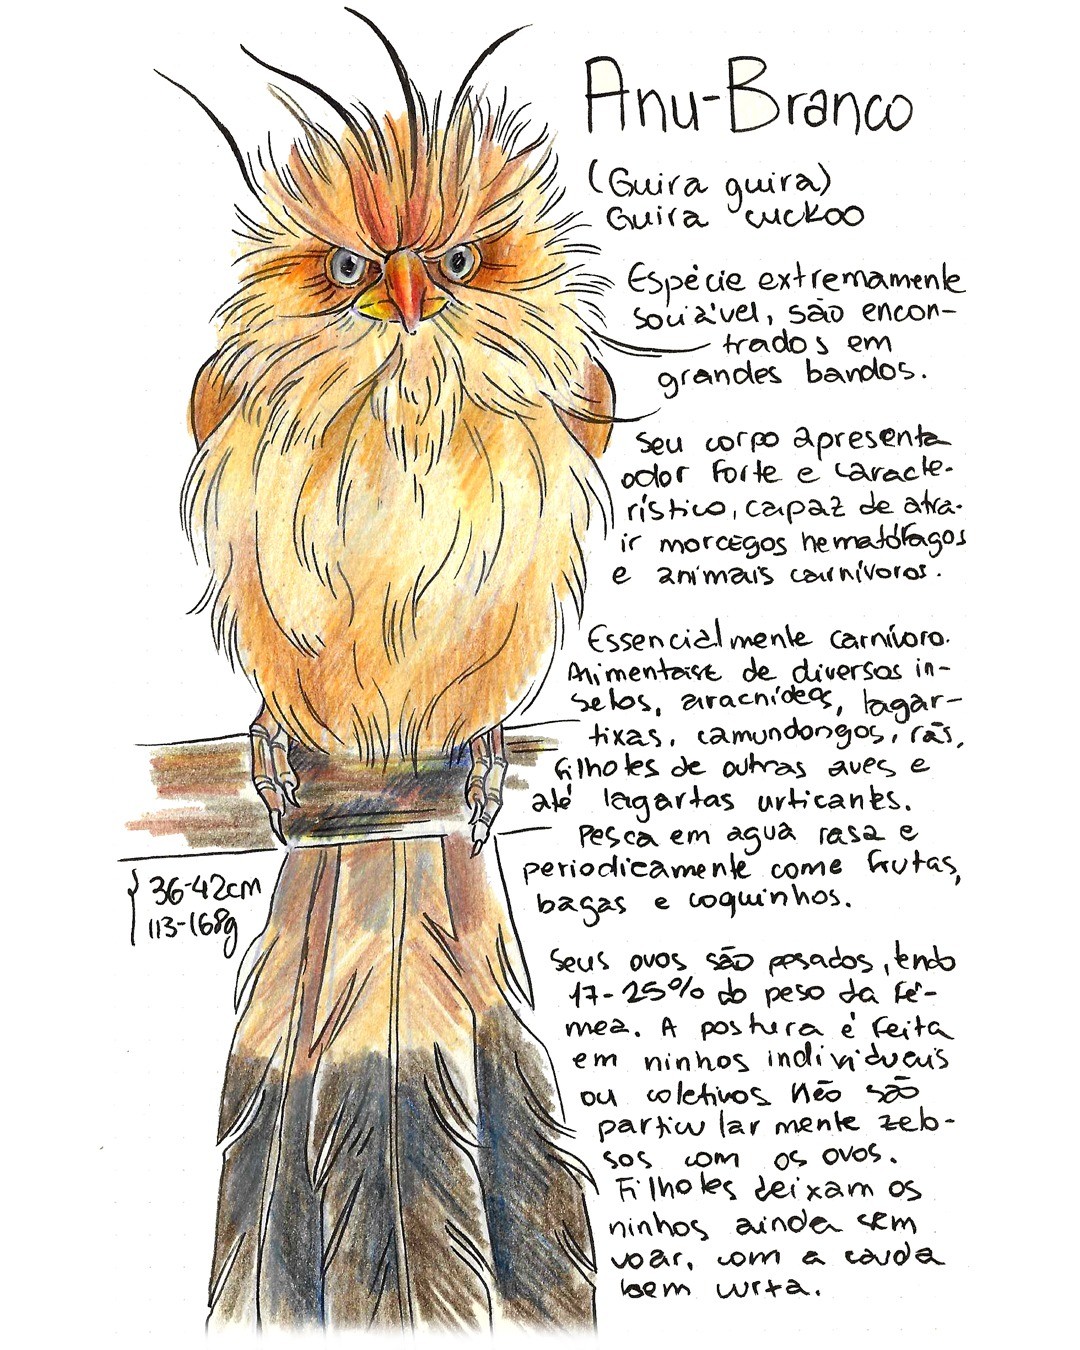 Anu-Branco
(Guira guira)
Guira cuckoo
Espécie extremamente
sociável, são encon-
trados em
grandes bandos.
Seu corpo apresenta
odor forte e caracte-
rístico, capaz de atra-
ir morcegos hematófagos
e animais carnívoros.
Essencialmente carnívoro.
Alimentaise de diversos in-
setos, aracnídeos, lagar-
tixas, camundongos, rãs,
filhotes de outras aves e
até lagartas urticantes.
Pesca em agua rasa e
periodicamente come frutas,
bagas e coquinhos.
36-42cm
113-168g
Seus ovos são pesados, tendo
17-25% do peso da fê-
mea. A postura é feita
em ninhos individuais
ou coletivos Não são
particularmente zelo-
sos com os ovos.
Filhotes deixam os
ninhos ainda sem
voar, com a cauda
bem curta.